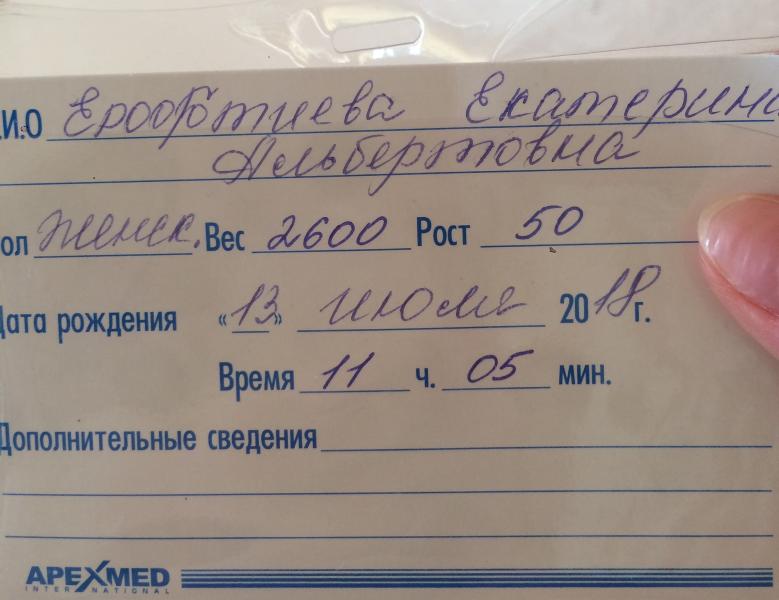 .И.О Ерофтиева Екатерина
Альбертовна
ол женск. Вес 2600 Рост 50
Дата рождения «13» июля 2018г.
Время 11 ч. 05 мин.
Дополнительные сведения
APEXMED
INTERNATIONAL